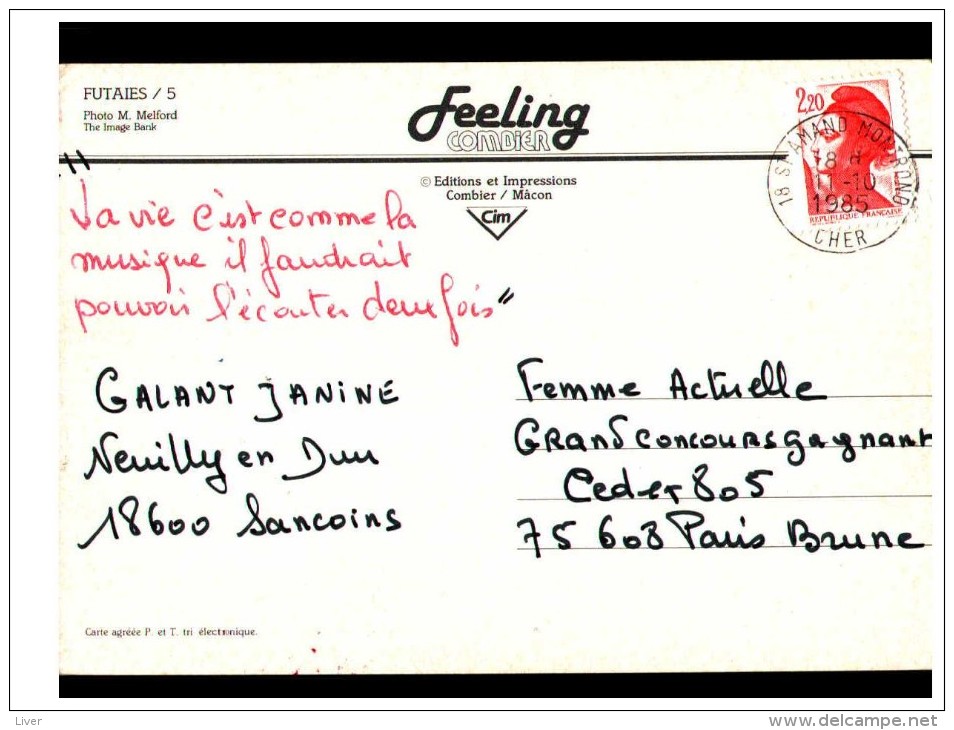 FUTAIES / 5
Photo M. Melford
The Image Bank
Feeling
COMBIER
© Editions et Impressions
Combier / Mâcon
Cim
2,20
REPUBLIQUE FRANCAISE
18 ST AMAND MONTROND
18 H
11-10
1985
CHER
"La vie c'est comme la
musique il faudrait
pouvoir l'écouter deux fois"
GALANT JANINE
Neuilly en Dun
18600 Sancoins
Femme Actuelle
GRAND CONCOURS gagnant
Cedex 805
75 608 Paris Brune
Carte agréée P. et T. tri électronique.
Liver
www.delcampe.net